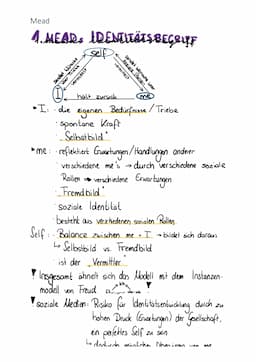 Mead
1. MEADs IDENTITÄTSBEGRIFF
self
I
hält zurück
me
I: - die eigenen Bedürfnisse / Triebe
- spontane Kraft
- "Selbstbild"
me: - reflektiert Erwartungen/Handlungen andrer
- verschiedene me's → durch verschiedene soziale
Rollen → verschiedene Erwartungen
- "Fremdbild"
- soziale Identität
- besteht aus verschiedenen sozialen Rollen
Self: - Balance zwischen me + I → bildet sich daraus
↳ Selbstbild vs. Fremdbild
- ist der "Vermittler"
! Insgesamt ähnelt sich das Modell mit dem Instanzen-
modell von Freud
! soziale Medien: Risiko für Identitätsentwicklung durch zu
hohen Druck (Erwartungen) der Gesellschaft,
ein perfektes Self zu sein
↳ dadurch